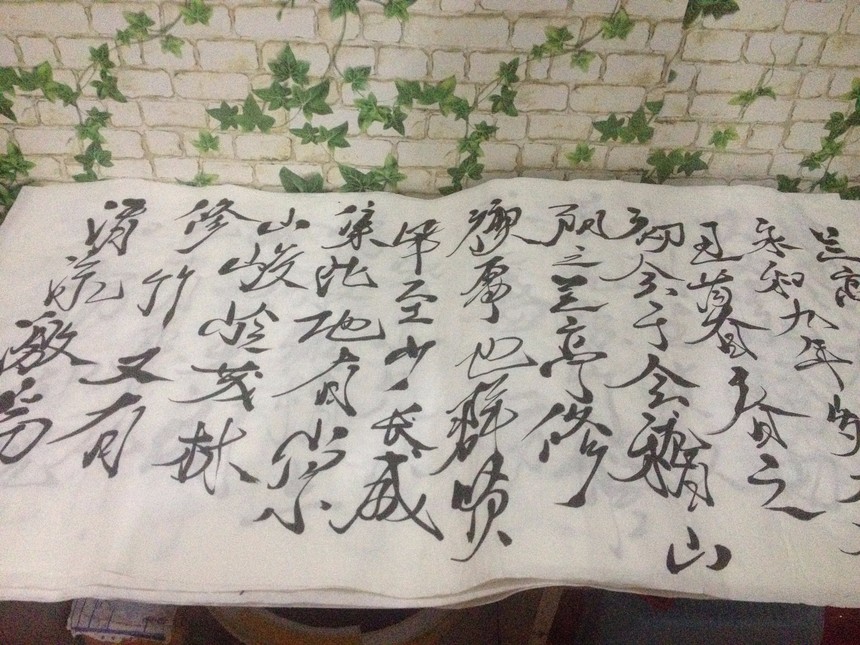 永和九年岁
丑暮春之
初会于会稽山
阴之兰亭修
禊事也群贤
毕至少长咸
集此地有崇
山峻岭茂林
修竹又有
清流激